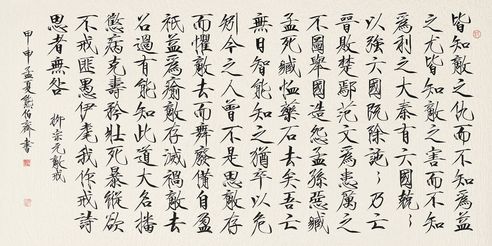 皆知敵之仇而不知為益
之尤皆知敵之害而不知
為利之大秦有六國兢〻
以強六國既除訑〻乃亡
晉敗楚鄢范文為患厲之
不圖舉國造怨孟孫惡臧
孟死臧恤藥石去矣吾亡
無日智能知之猶卒以危
矧今之人曾不是思敵存
而懼敵去而舞廢備自盈
祇益為瘉敵存滅禍敵去
召過有能知此道大名播
懲病克壽矜壯死暴縱欲
不戒匪愚伊耄我作戒詩
思者無咎 柳宗元敵戒
甲申孟夏熊伯齊書